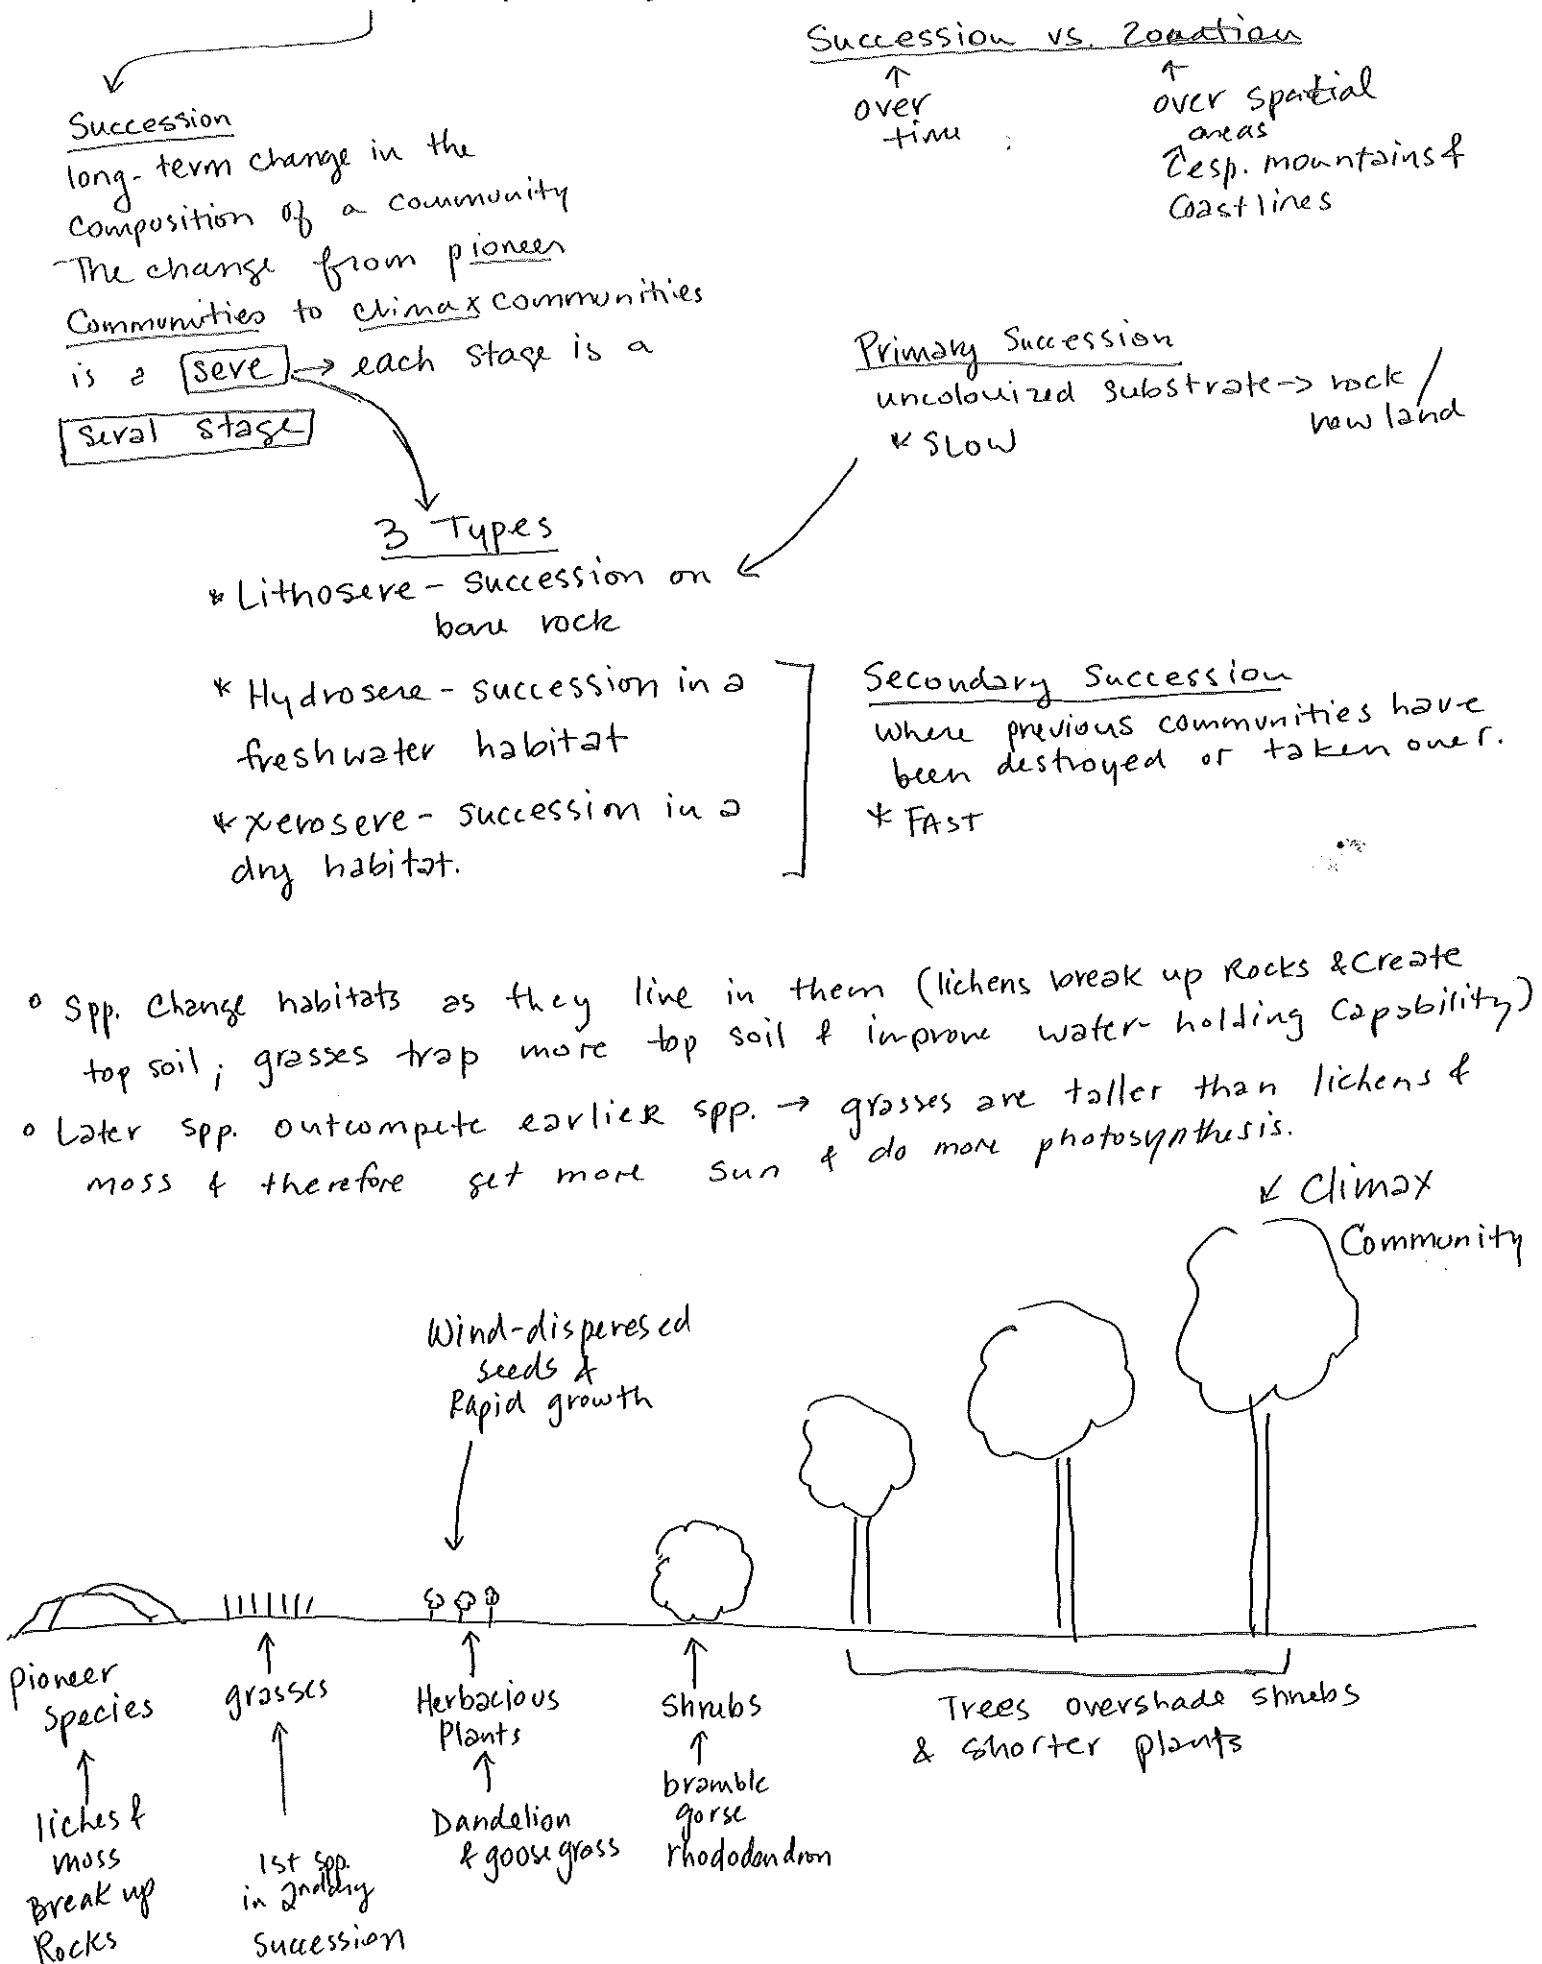 Succession vs. Zonation
over
time
over spatial
areas
esp. mountains &
Coastlines
Succession
long-term change in the
composition of a community
The change from pioneer
Communities to climax communities
is a sere → each stage is a
Seral stage
Primary Succession
uncolonized substrate → rock /
new land
* SLOW
3 Types
* Lithosere - succession on
bare rock
* Hydrosere - succession in a
freshwater habitat
* Xerosere - succession in a
dry habitat.
Secondary Succession
Where previous communities have
been destroyed or taken over.
* FAST
° Spp. Change habitats as they live in them (lichens break up Rocks & Create
top soil; grasses trap more top soil & improve water-holding Capability)
° Later spp. outcompete earlier spp. → grasses are taller than lichens &
moss & therefore get more sun & do more photosynthesis.
Climax
Community
Wind-disperesed
seeds &
Rapid growth
Pioneer
Species
liches &
moss
Break up
Rocks
grasses
1st spp.
in 2ndary
Succession
Herbacious
Plants
Dandelion
& goosegrass
Shrubs
bramble
gorse
rhododendron
Trees overshade shrubs
& shorter plants